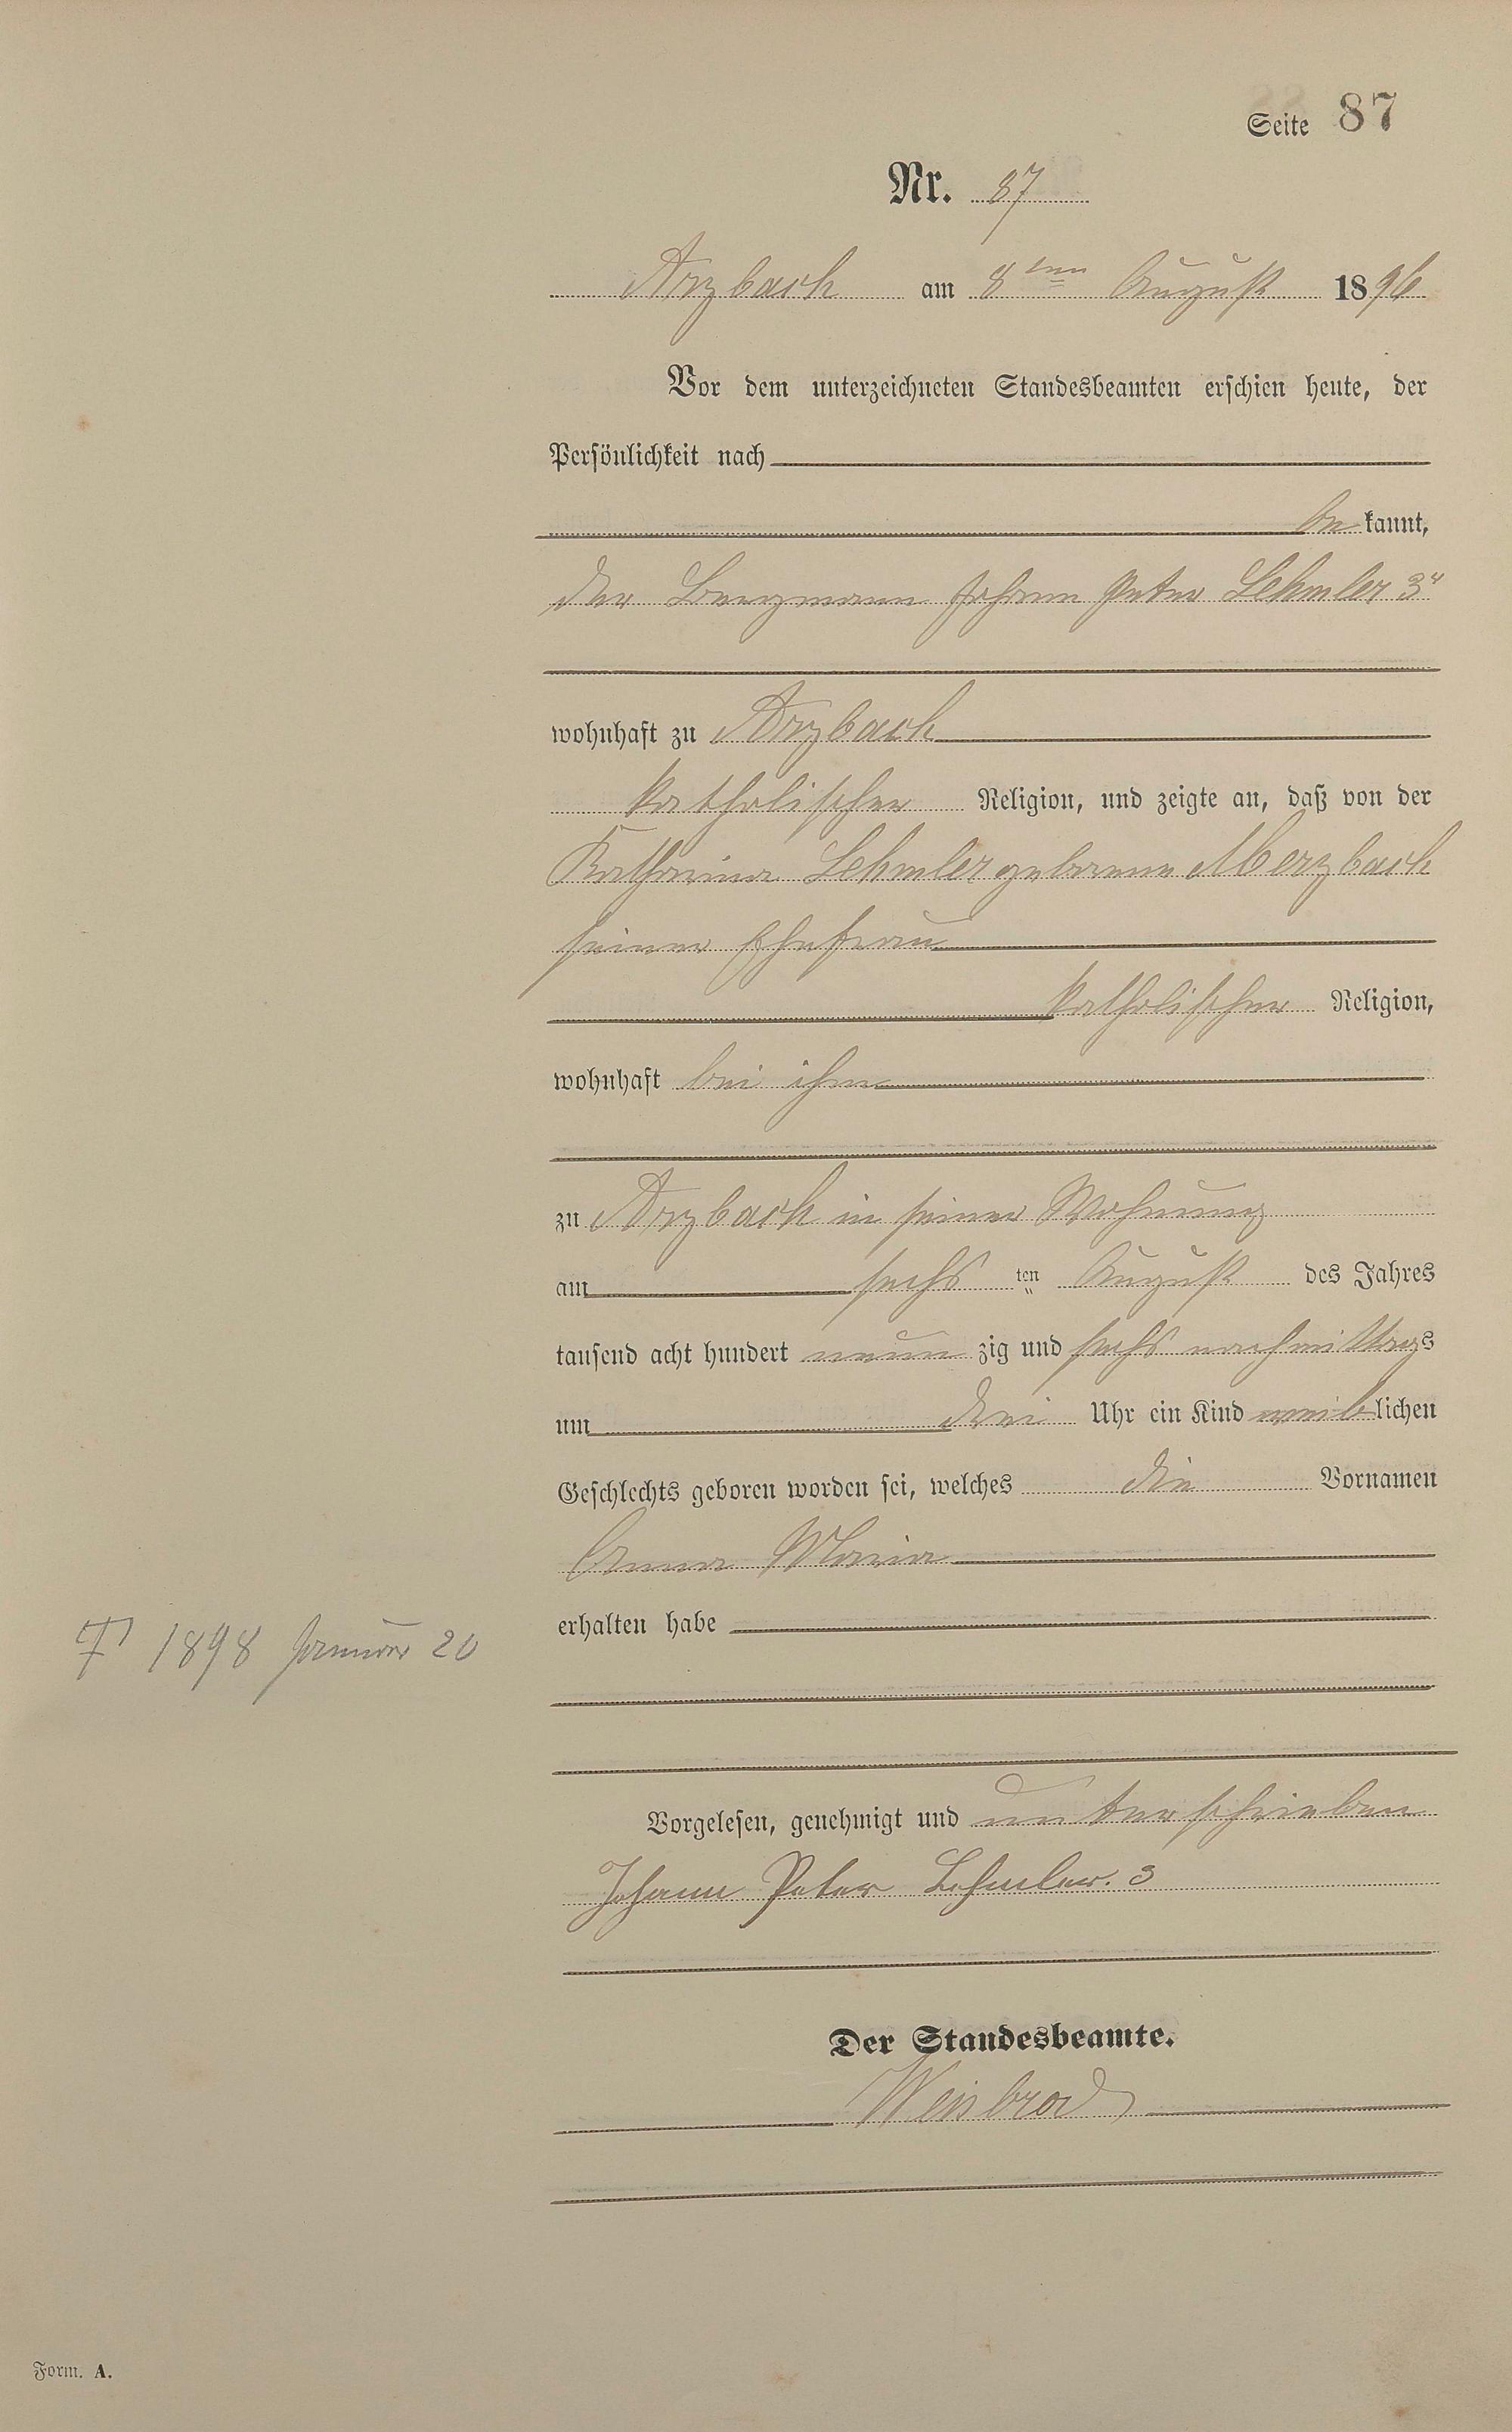 Seite 87
Nr. 87
Arzbach am 8ten August 1896
Vor dem unterzeichneten Standesbeamten erschien heute, der
Persönlichkeit nach
be kannt,
der Bergmann Johann Peter Lehmler 3r
wohnhaft zu Arzbach
katholischer Religion, und zeigte an, daß von der
Katharina Lehmler geborene Merzbach
seiner Ehefrau
katholischer Religion,
wohnhaft bei ihm
zu Arzbach in seiner Wohnung
am sechs ten August des Jahres
tausend acht hundert neun zig und sechs nachmittags
um drei Uhr ein Kind weib lichen
Geschlechts geboren worden sei, welches die Vornamen
Anna Maria
erhalten habe
† 1898 Januar 20
Vorgelesen, genehmigt und unterschrieben
Johann Peter Lehmler. 3
Der Standesbeamte.
Weisbrod
Form. A.